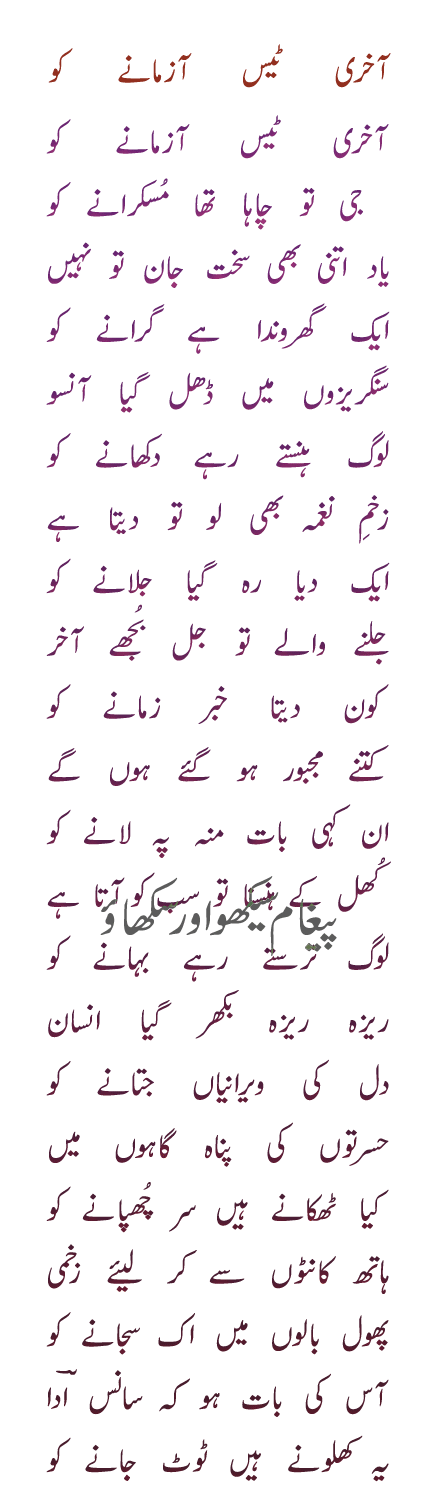 آخری ٹیس آزمانے کو
آخری ٹیس آزمانے کو
جی تو چاہا تھا مُسکرانے کو
یاد اتنی بھی سخت جان تو نہیں
ایک گھروندا ہے گرانے کو
سنگریزوں میں ڈھل گیا آنسو
لوگ ہنستے رہے دکھانے کو
زخمِ نغمہ بھی لو تو دیتا ہے
ایک دیا رہ گیا جلانے کو
جلنے والے تو جل بُجھے آخر
کون دیتا خبر زمانے کو
کتنے مجبور ہو گئے ہوں گے
ان کہی بات منہ پہ لانے کو
کُھل کے ہنسنا تو سب کو آتا ہے
پیغام سیکھو اور سکھاؤ
لوگ ترستے رہے بہانے کو
ریزہ ریزہ بکھر گیا انسان
دل کی ویرانیاں جتانے کو
حسرتوں کی پناہ گاہوں میں
کیا ٹھکانے ہیں سر چُھپانے کو
ہاتھ کانٹوں سے کر لیئے زخمی
پھول بالوں میں اک سجانے کو
آس کی بات ہو کہ سانس اداؔ
یہ کھلونے ہیں ٹوٹ جانے کو